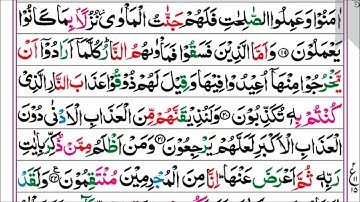 اٰمَنُوۡا وَعَمِلُوا الصّٰلِحٰتِ فَلَهُمۡ جَنّٰتُ الۡمَاۡوٰى نُزُلًاۢ بِمَا كَانُوۡا
يَعۡمَلُوۡنَ ﴿۱۹﴾ وَاَمَّا الَّذِيۡنَ فَسَقُوۡا فَمَاۡوٰٮهُمُ النَّارُ كُلَّمَاۤ اَرَادُوۡۤا اَنۡ
يَّخۡرُجُوۡا مِنۡهَاۤ اُعِيۡدُوۡا فِيۡهَا وَقِيۡلَ لَهُمۡ ذُوۡقُوۡا عَذَابَ النَّارِ الَّذِىۡ
كُنۡتُمۡ بِهٖ تُكَذِّبُوۡنَ ﴿۲۰﴾ وَلَنُذِيۡقَنَّهُمۡ مِّنَ الۡعَذَابِ الۡاَدۡنٰى دُوۡنَ
الۡعَذَابِ الۡاَكۡبَرِ لَعَلَّهُمۡ يَرۡجِعُوۡنَ ﴿۲۱﴾ وَمَنۡ اَظۡلَمُ مِمَّنۡ ذُكِّرَ بِاٰيٰتِ
رَبِّهٖ ثُمَّ اَعۡرَضَ عَنۡهَا ؕ اِنَّا مِنَ الۡمُجۡرِمِيۡنَ مُنۡتَقِمُوۡنَ ﴿۲۲﴾ وَلَقَدۡ